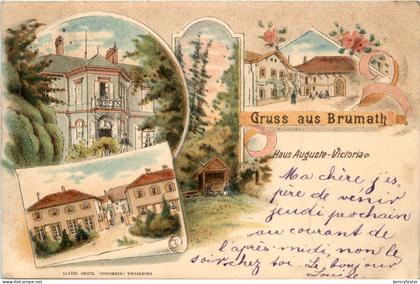 Gruss aus Brumath
Haus Auguste-Victoria
Ma chère j'es-
père de venir
jeudi prochain
au courant de
l'après-midi, non le
soir chez toi. Le bonjour
Louise.
ELSÄSS. DRUCK. (FISCHBACH) STRASSBURG
bennyfostel